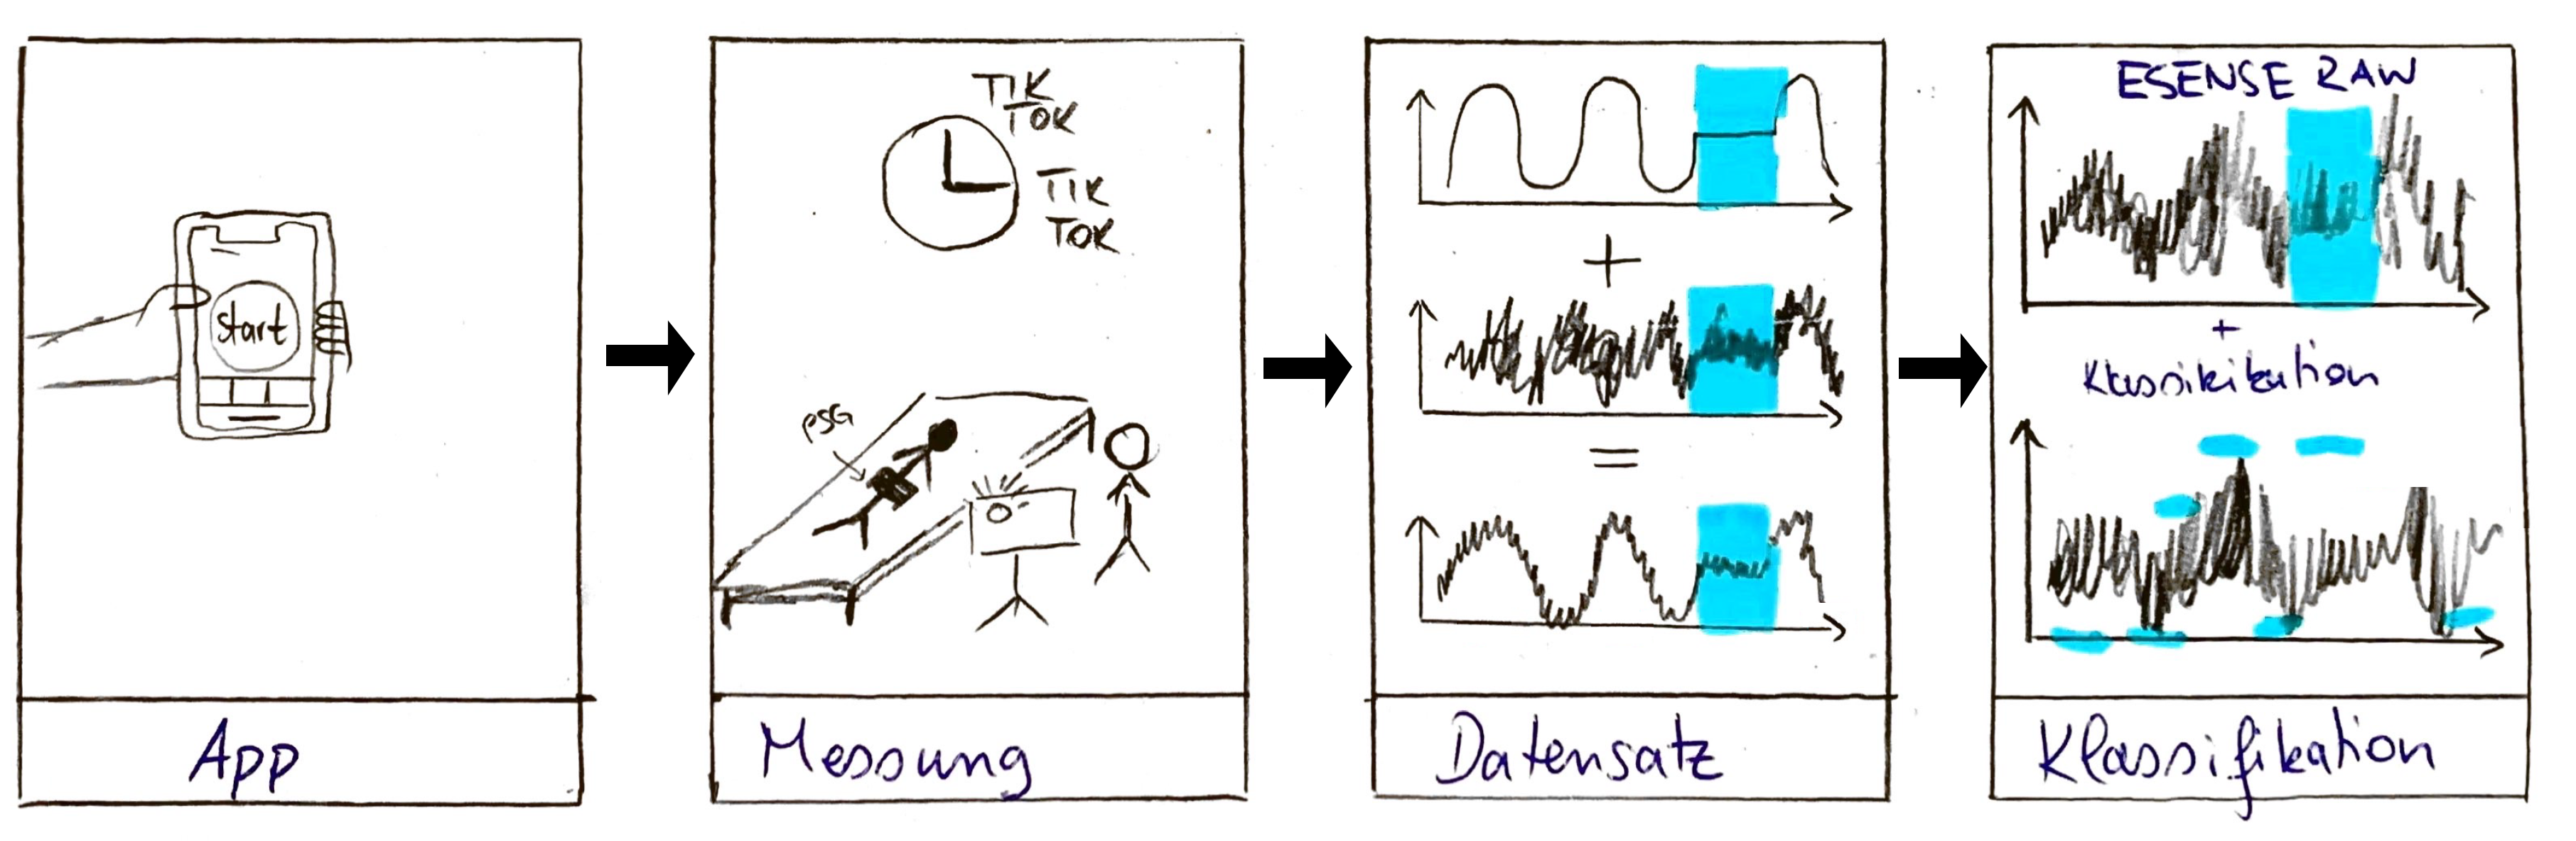 start
App
TIK
TOK
TIK
TOK
PSG
Messung
+
=
Datensatz
ESENSE RAW
+
Klassifikation
Klassifikation